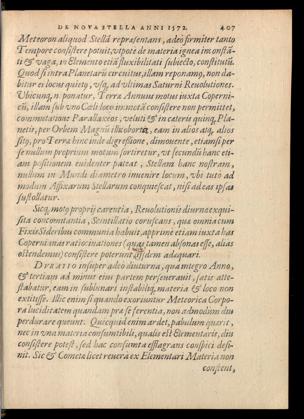 DE NOVA STELLA ANNI 1572. 407
Meteoron aliquod Stellã repræsentans, adeò firmiter tanto
Tempore consistere potuit, vtpote de materia ignea inconstã-
ti & vaga, in Elemento etiã fluxibilitati subiecto, constitutũ.
Quod si intra Planetarũ circuitus, illam reponamo, non da-
bitur ei locus quieto, vsq, ad vltimam Saturni Revolutionem.
Vbicunq, n. ponatur, Terræ Annuus motus iuxta Coperni-
cũ, illam sub vno Cæli loco immotã consistere non permittet,
commutatione Parallaxeos: veluti & in cæteris quinq, Pla-
netis, per Orbem Magnũ illic obortæ, eam in aliot atq, alios
sito, pro Terræ hinc inde digressione, dimovente, etiamsi per
se nullum proprium motum sortiretur, vt secundũ hanc eti-
am positionem evidenter pateat, Stellam hanc nostram,
nullum in Mundi diametro invenire locum, vbi tuto ad
modum Affixarum Stellarum conquiescat, nisi ad eas ipsas
sustollatur.
Sicq, moto proprij carentia, Revolutionis diurnæ exqui-
sita concomitantia, Scintillatio coruscans, quæ omnia cum
Fixis Sideribus communia habuit, apprimè etiam iuxta has
Copernianas ratiocinationes (quas tamen absonas esse, alias
ostendemus) consistere poterunt adem adæquari.
DVRATIO insuper adeò diuturna, quæ integro Anno,
& tertiam ad minus eius partem perseveravit, satis atte-
stabatur, eam in sublunari instabiliq, materia & loco non
extitisse. Illic enim si quando exoriuntur Meteorica Corpo-
ra luciditatem quandam præ se ferentia, non admodum diu
perdurare queunt. Quicquid enim ardet, pabulum quærit,
nec in vna materia consumtibili, qualis est Elementaris, diu
consistere potest, sed hac consumta efflagrans conspici desi-
nit. Sic & Cometa licet revera ex Elementari Materia non
constent,